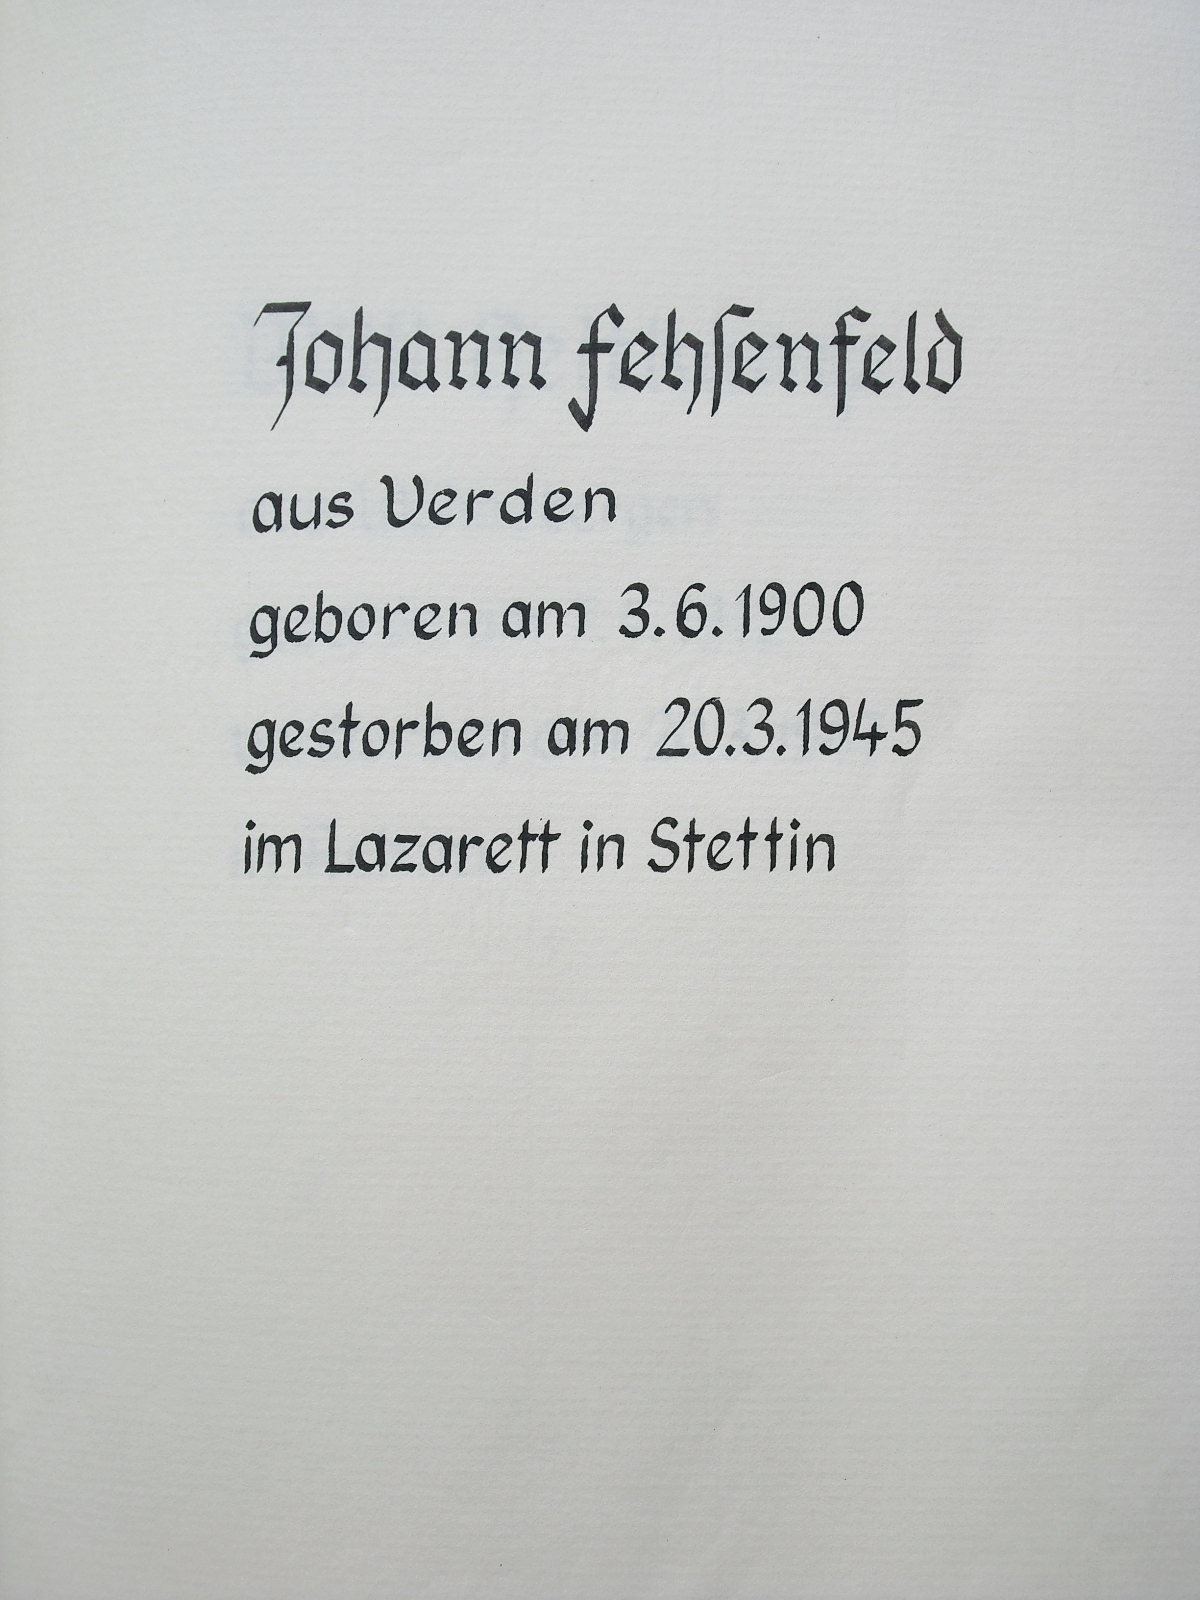 Johann Fehſenfeld
aus Verden
geboren am 3.6.1900
gestorben am 20.3.1945
im Lazarett in Stettin